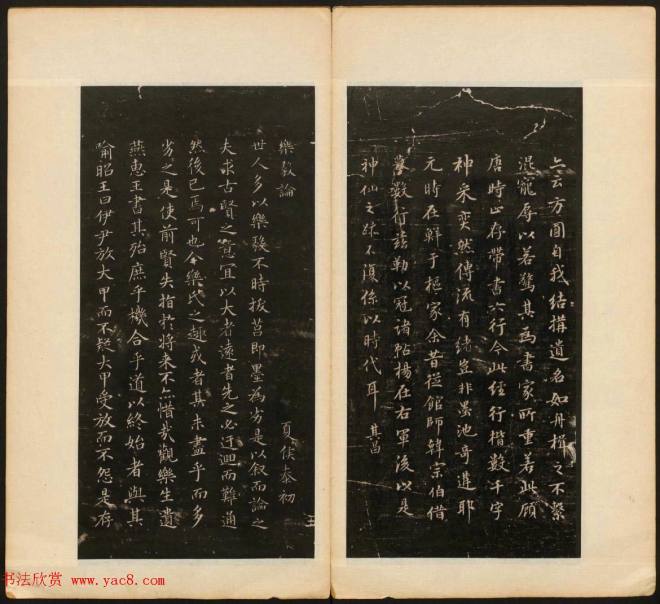 云方圓自我結構遺名如舟楫之不繫
混寵辱以若驚其為書家所重若此顧
唐時止存帶書六行今此經行楷數千字
神采奕然傳流有緒豈非墨池奇遘耶
元時在鮮于樞家余昔從館師韓宗伯借
摹數行茲勒以冠諸帖揚在右軍後以是
神仙之跡不復係以時代耳 其昌
樂毅論 夏侯泰初
世人多以樂毅不時拔莒即墨為劣是以叙而論之
夫求古賢之意宜以大者遠者先之必迂迴而難通
然後已焉可也今樂氏之趣或者其未盡乎而多
劣之是使前賢失指於將来不亦惜哉觀樂生遺
燕惠王書其殆庶乎機合乎道以終始者與其
喻昭王曰伊尹放大甲而不疑大甲受放而不怨是存
书法欣赏 www.yac8.com